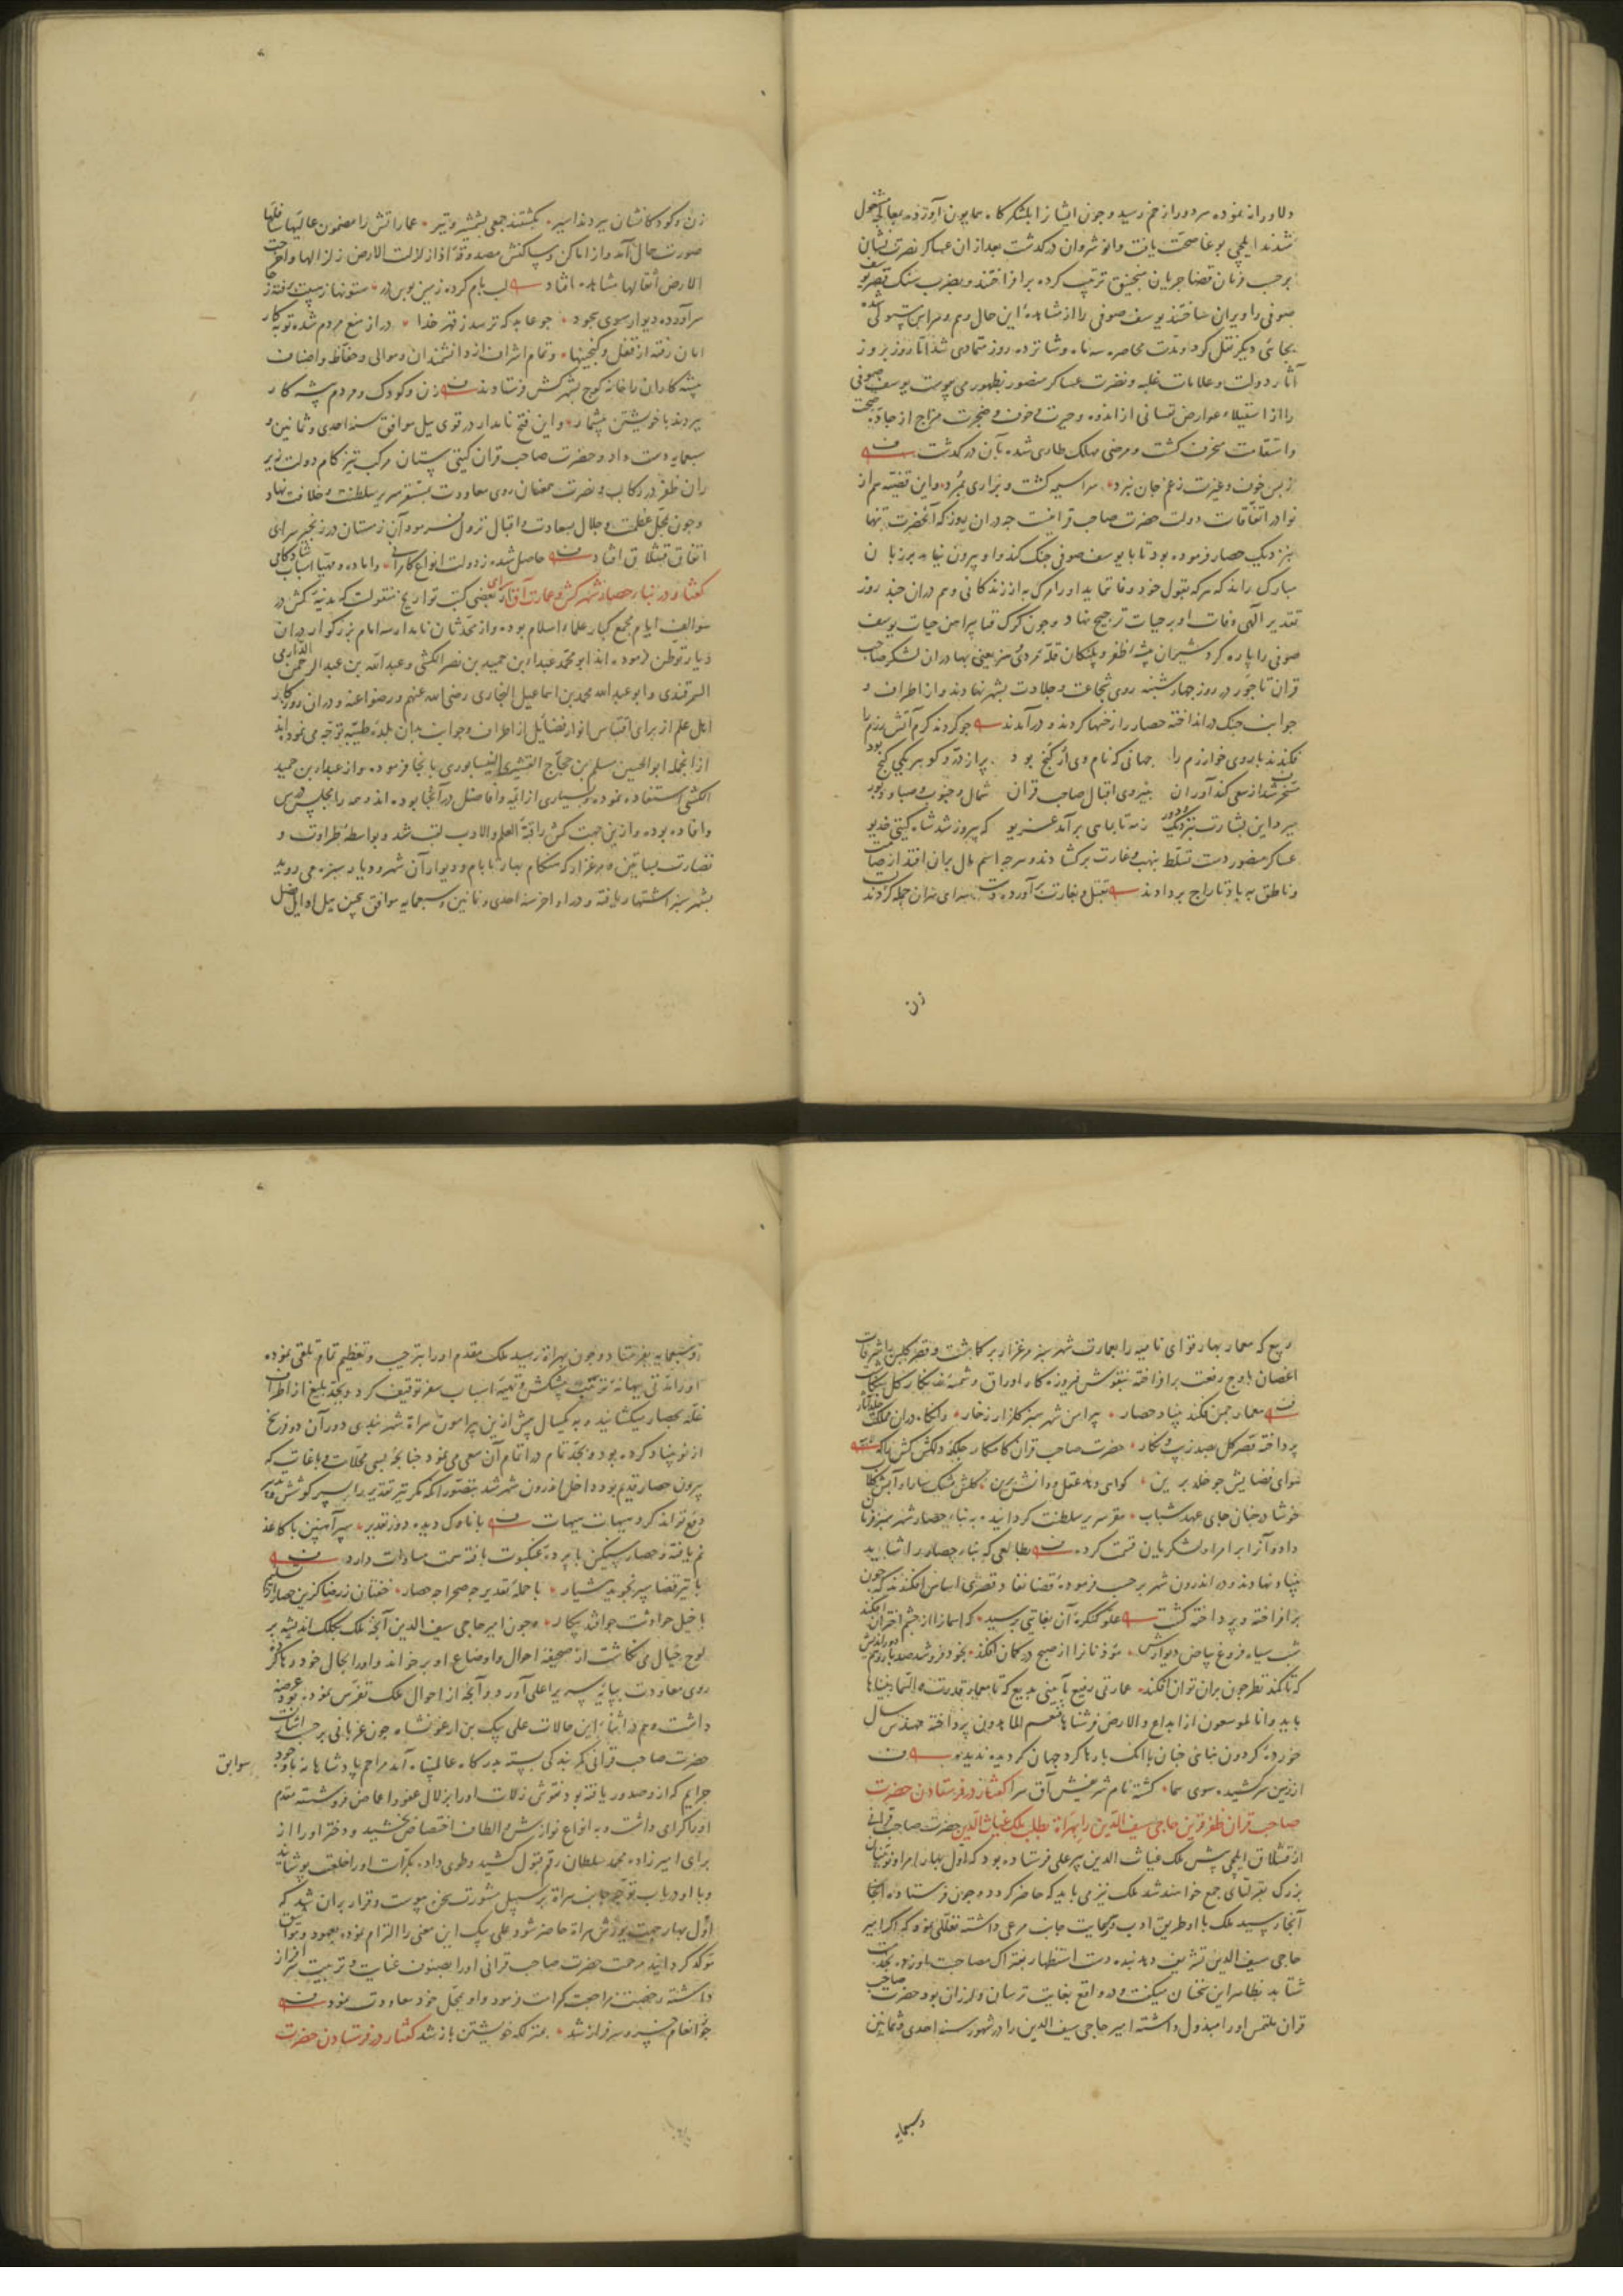 دلاورانه نموده هر دو را زخم رسید و چون ایشانرا بلشکرکاه همایون آوردند بمعالجه مشغول
شدند ایلچی بوغا صحت یافت و انوشروان درکذشت بعد از ان عساکر نصرت نشان
بر حسب فرمان قضا جریان منجنیق ترتیب کرده برافراختند و بضرب سنک قصر یوسف
صوفی را ویران ساختند یوسف صوفی را از مشاهدهٔ این حال وهم و هراس مستولی شده
بجائی دیکر نقل کرد و مدت محاصره سه ماه و شانزده روز متمادی شد اما روز بروز
آثار دولت و علامات غلبه و نصرت عساکر منصور بظهور می پیوست یوسف صوفی
را از استیلاء عوارض نفسانی از اندوه و حیرت و خوف و ضجرت مزاج از جادهٔ صحت
و استقامت منحرف کشت و مرضی مهلک طاری شده بآن درکذشت
ز بس خوف و غیرت ز غم جان نبرد سراسیمه کشت و بزاری بمرد و این قضیه هم از
نوادر اتفاقات دولت حضرت صاحب قرانیست چه در ان روز که آنحضرت تنها
بنزدیک حصار فرموده بود تا با یوسف صوفی جنک کند و او بیرون نیامد بر زبان
مبارک راند که هر که بقول خود وفا ننماید او را مرک به از زندکانی و هم در ان چند روز
تقدیر آلهی وفات او بر حیات ترجیح نهاد و چون کرک فنا پیراهن حیات یوسف
صوفی را پاره کرد شیران بیشهٔ ظفر و پلنکان قلهٔ مردی و هنر یعنی بهادران لشکر صاحب
قران تاجور در روز چهارشنبه روی شجاعت و جلادت بشهر نهادند و از اطراف و
جوانب جنک درانداخته حصار را رخنها کردند و درآمدند چو کردند کرم آتش رزم را
فکندند باروی خوارزم را جهانی که نام وی ارکنج بود پر از در و کوهر یکی کنج بود
مسخر شد از سعی کندآوران بنیروی اقبال صاحب قران شمال و جنوب و صبا و دبور
ببرد این بشارت بنزدیک و دور ز مه تا بماهی برآمد غریو که پیروز شد شاه کیتی خدیو
عساکر منصور دست تسلط بنهب و غارت برکشادند و هر چه اسم مال بر ان افتد از صامت
و ناطق بباد تاراج بردادند بقتل و بغارت برآورده دست سرای سران جمله کردند
زن
زن و کودکانشان ببردند اسیر بکشتند جمعی بشمشیر و تیر عماراتش را مضمون عالیها سافلها
صورت حال آمد و از اماکن و مساکنش مصدوقهٔ اذا زلزلت الارض زلزالها و اخرجت
الارض اثقالها مشاهده افتاد لب بام کرده زمین بوس در ستونها ز هیبت برفته ز جا
سرآورده دیوار سوی سجود چو عابد که ترسد ز قهر خدا در از منع مردم شده توبه کار
امان رفته از قفل و کنجینها و تمام اشراف از دانشمندان و موالی و حفاظ و اصناف
پیشه کاران را خانه کوچ بشهر کش فرستادند زن و کودک و مردم پیشه کار
ببردند با خویشتن بیشمار و این فتح نامدار در قوی ییل موافق سنه احدی و ثمانین و
سبعمایه دست داد و حضرت صاحب قران کیتی ستان مرکب تیزکام دولت زیر
ران ظفر در رکاب و نصرت همعنان روی معاودت بمستقر سریر سلطنت و خلافت نهاد
و چون بمحل عظمت و جلال بسعادت و اقبال نزول فرمود آن زمستان در زنجیر سرای
اتفاق قشلاق افتاد حاصل شده ز دولت انواع کامرانی و آماده و مهیا اسباب شادکامی
کفتار در بنیاد حصار شهر کش و عمارت آق سرای در بعضی کتب تواریخ منقولست که مدینهٔ کش در
سوالف ایام مجمع کبار علماء اسلام بوده و از محدثان نامدار سه امام بزرکوار در ان
دیار توطن فرموده اند ابو محمد عبد بن حمید بن نصر الکشی و عبد الله بن عبد الرحمن الدارمی
السمرقندی و ابو عبد الله محمد بن اسماعیل البخاری رضی الله عنهم و رضوا عنه و در ان روزکار
اهل علم از برای اقتباس انوار فضایل از اطراف و جوانب بدان بلدهٔ طیبه توجه می نموده اند
از انجمله ابو الحسین مسلم بن حجاج القشیری النیسابوری بآنجا فرموده و از عبد بن حمید
الکشی استفاده نموده و بسیاری از ائمه و افاضل در آنجا بوده اند و همه را مجلس درس
و افاده بوده و ازین جهت کش را قبة العلم و الادب لقب شد و بواسطهٔ طراوت و
نضارت بساتین و مرغزار که هنکام بهار تا بام و دیوار آن شهر و دیار سبزه می روید
بشهر سبز اشتهار یافته و در اواخر سنه احدی و ثمانین و سبعمایه موافق بیچین ییل اوایل فصل
ربیع که معمار بهار قوای نامیه را بعمارت شهر سبز مرغزار برکماشت و قصر کلبن با شرفات
اغصان باوج رفعت برافراخته بنقوش فیروزه کار اوراق و شمسهٔ
معمار چمن فکند بنیاد حصار پیرامن شهر سبز کلزار ز خار
پرداخته قصر کل بصد زیب و نکار حضرت صاحب قران کامکار جلکهٔ دلکش کش را که
هوای فضایش چو خلد برین کوای دهد عقل و دانش برین کلش مشک سارا و آبش کلاب
خوشا در چنان جای عهد شباب مقر سریر سلطنت کردانید و به بناء حصار شهر سبز فرمان
داد و آنرا بر امرا و لشکریان قسمت کرد بطالعی که بنای حصار را شاید
بنیاد نهادند و در اندرون شهر بر حسب فرمودهٔ قضا نفاذ قصری اساس افکندند که چون
برافراخته و پرداخته کشت علو کنکرهٔ آن بغایتی برسید که آسمان را از چشم اختران افکند
شب سیاه فروغ بیاض دیوارش مؤذنانرا از صبح در کمان افکند
که تا کند نظر چون بران توان افکند عمارتی رفیع بآیینی بدیع که تا معمار قدرت و السماء بنیناها
باید و انا لموسعون از ابداع و الارض فرشناها فنعم الماهدون پرداخته مهندس سال
خوردهٔ کردون بنائی چنان با آنک بارها کرد جهان کردیده ندیده بود
از زمین سر کشیده سوی سما کشته نام شریفش آق سرا کفتار در فرستادن حضرت
صاحب قران ظفر قرین حاجی سیف الدین را بهراة بطلب ملک غیاث الدین حضرت صاحب قرانی
از قشلاق ایلچی پیش ملک غیاث الدین پیر علی فرستاده بود که اول بهار امرا و نوینان
بزرک بقرلتای جمع خواهند شد ملک نیز می باید که حاضر کردد و چون فرستاده آنجا
آنجا رسید ملک با او طریق ادب و رعایت جانب مرعی داشته تعللی نمود که اکر امیر
حاجی سیف الدین تشریف دهد بنده دست استظهار بفتراک مصاحبت او زده بخدمت
شتابد بظاهر این سخنان میکفت و در واقع بغایت ترسان و لرزان بود حضرت صاحب
قران ملتمس او را مبذول داشته امیر حاجی سیف الدین را در شهور سنه احدی و ثمانین
و سبعمایه
و سبعمایه بفرستاد و چون بهراة رسید ملک مقدم او را بترحیب و تعظیم تمام تلقی نمود
و او را مدتی ببهانهٔ ترتیب پیشکش و تهیهٔ اسباب سفر توقیف کرد و بجد بلیغ از اطراف
غله بحصار میکشانید و به یکسال پیش ازین پیرامون هراة شهربندی دور آن دو فرسخ
از نو بنیاد کرده بود و بجد تمام در اتمام آن سعی می نمود چنانچه بسی محلات و باغات که
بیرون حصار قدیم بود داخل اندرون شهر شد بتصور آنکه مکر تیر تقدیر را بسپر کوشش و تدبیر
دفع تواند کرد هیهات هیهات با ناوک دیده دوز تقدیر سپر آهنین با کاغذ
نم یافته و حصار سنکین با پردهٔ عنکبوت بافته سمت مساوات دارد
با تیر قضا سپر نجوید هشیار با حملهٔ تقدیر چه صحرا چه حصار
با خیل حوادث چو افتد پیکار و چون امیر حاجی سیف الدین آنچه ملک بکلک اندیشه بر
لوح خیال می نکاشت از صحیفهٔ احوال و اوضاع او برخواند و او را بحال خود رها کرد
روی معاودت بپایهٔ سریر اعلی آورد و آنچه از احوال ملک تفرس نموده بود عرضه
داشت و هم در اثنای این حالات علی بیک بن ارغونشاه جون غربانی بر حسب اشارت
حضرت صاحب قرانی کمر بندکی بسته بدرکاه عالم پناه آمد مراحم پادشاهانه با وجود سوابق
جرایم که از او صدور یافته بود نقوش زلات او را بزلال عفو و اغماض فروشسته مقدم
او را کرامی داشت و به انواع نوازش و الطاف اختصاص بخشید و دختر او را از
برای امیرزاده محمد سلطان رقم قبول کشید و طوی داده بکرات او را خلعت پوشانید
و با او در باب توجه بجانب هراة بر سبیل مشورت سخن پیوست و قرار بر ان شد که
اول بهار جهت یورش هراة حاضر شود و علی بیک این معنی را التزام نموده بعهود و مواثیق
موکد کردانید مرحمت حضرت صاحب قرانی او را بصنوف عنایت و تربیت سرافراز
داشته رخصت مراجعت کرامت فرمود و او بمحل خود معاودت نمود
چو از انعام خسرو سرفراز شد بمنزلکه خویشتن باز شد کفتار در فرستادن حضرت